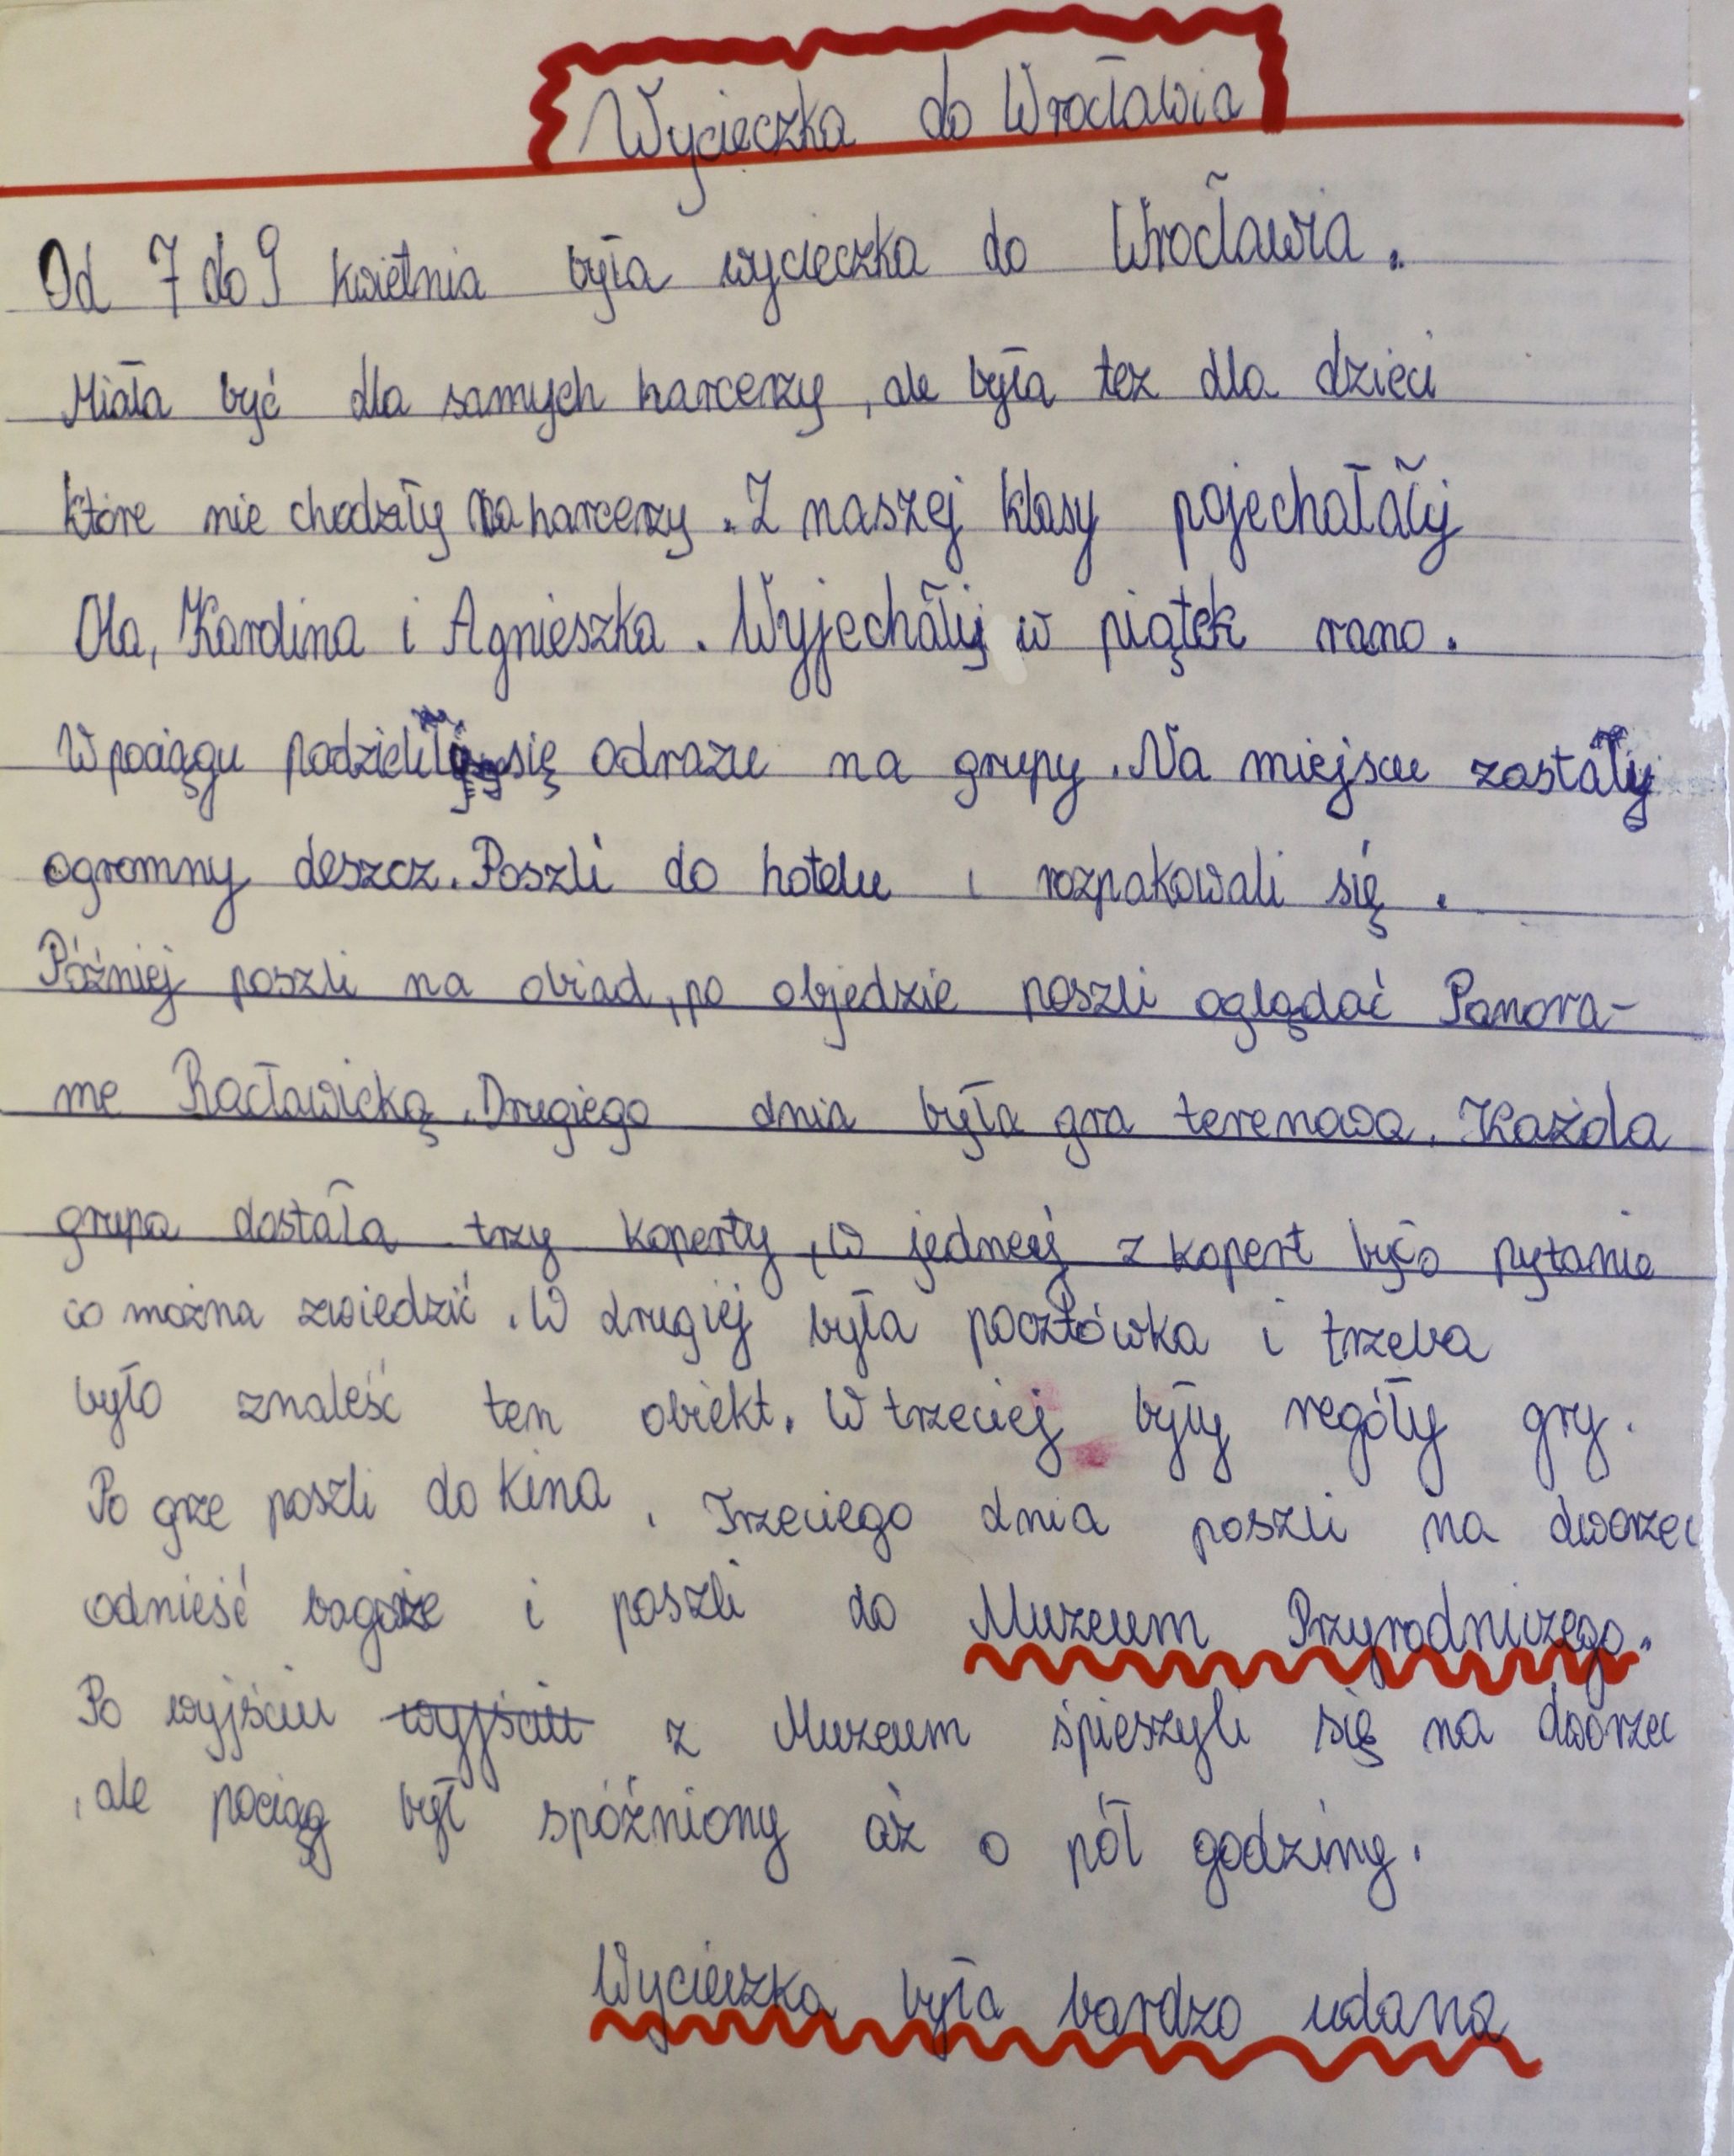 Wycieczka do Wrocławia
Od 7 do 9 kwietnia była wycieczka do Wrocławia.
Miała być dla samych harcerzy, ale była tez dla dzieci
które nie chodziły na harcerzy. Z naszej klasy pojechałały
Ola, Karolina i Agnieszka. Wyjechały w piątek rano.
W pociągu podzieliły się odrazu na grupy. Na miejscu zastały
ogromny deszcz. Poszli do hotelu i rozpakowali się.
Później poszli na obiad, po objedzie poszli oglądać Panora-
me Racławicką. Drugiego dnia była gra terenowa. Każda
grupa dostała trzy koperty, w jednej z kopert było pytanie
co można zwiedzić. W drugiej była pocztówka i trzeba
było znaleść ten obiekt. W trzeciej były regóły gry.
Po grze poszli do kina. Trzeciego dnia poszli na dworzec
odnieść bagaże i poszli do Muzeum Przyrodniczego.
Po wyjściu wyjściu z Muzeum śpieszyli się na dworzec
, ale pociąg był spóźniony aż o pół godziny.
Wycieczka była bardzo udana